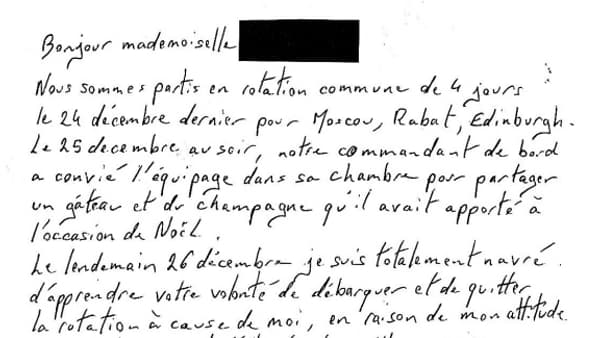 Bonjour mademoiselle
Nous sommes partis en rotation commune de 4 jours
le 24 décembre dernier pour Moscou, Rabat, Edinburgh.
Le 25 decembre au soir, notre commandant de bord
a convié l'équipage dans sa chambre pour partager
un gâteau et du champagne qu'il avait apporté à
l'occasion de Noël.
Le lendemain 26 décembre je suis totalement navré
d'apprendre votre volonté de débarquer et de quitter
la rotation à cause de moi, en raison de mon attitude.